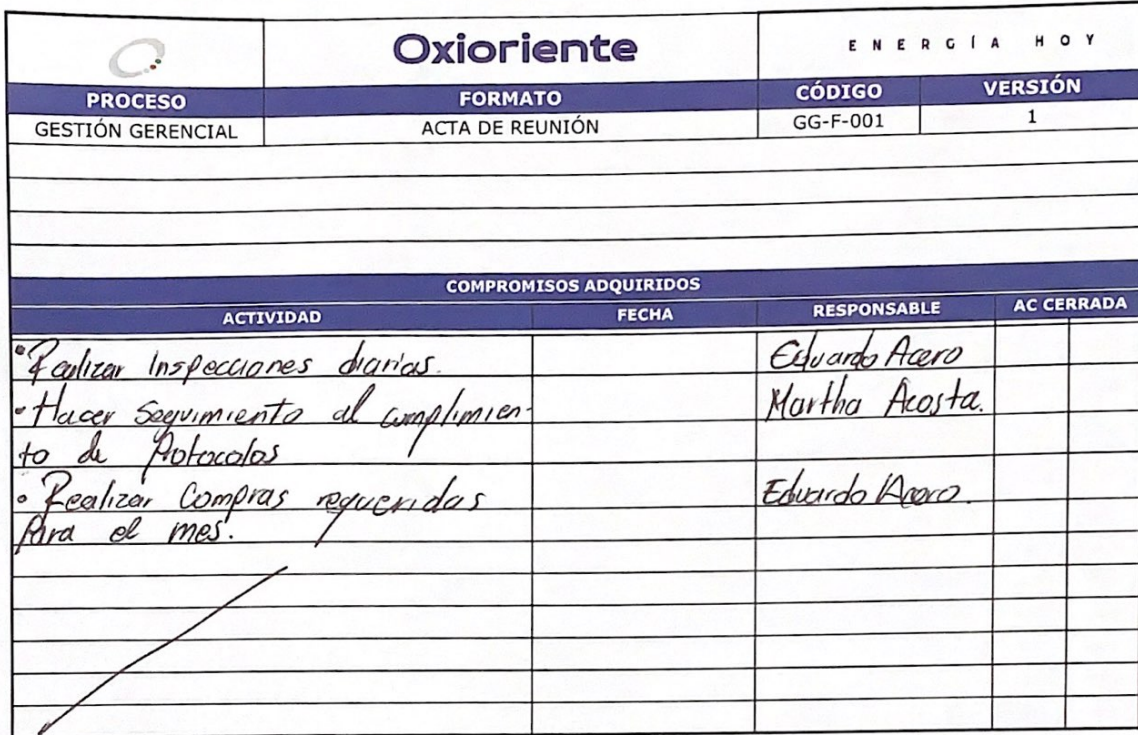 Oxioriente
ENERGÍA HOY
PROCESO FORMATO CÓDIGO VERSIÓN
GESTIÓN GERENCIAL ACTA DE REUNIÓN GG-F-001 1
COMPROMISOS ADQUIRIDOS
ACTIVIDAD FECHA RESPONSABLE AC CERRADA
• Realizar Inspecciones diarias. Eduardo Acero
• Hacer Seguimiento al cumplimien- Martha Acosta.
to de Protocolos
• Realizar Compras requeridas Eduardo Acero.
Para el mes.